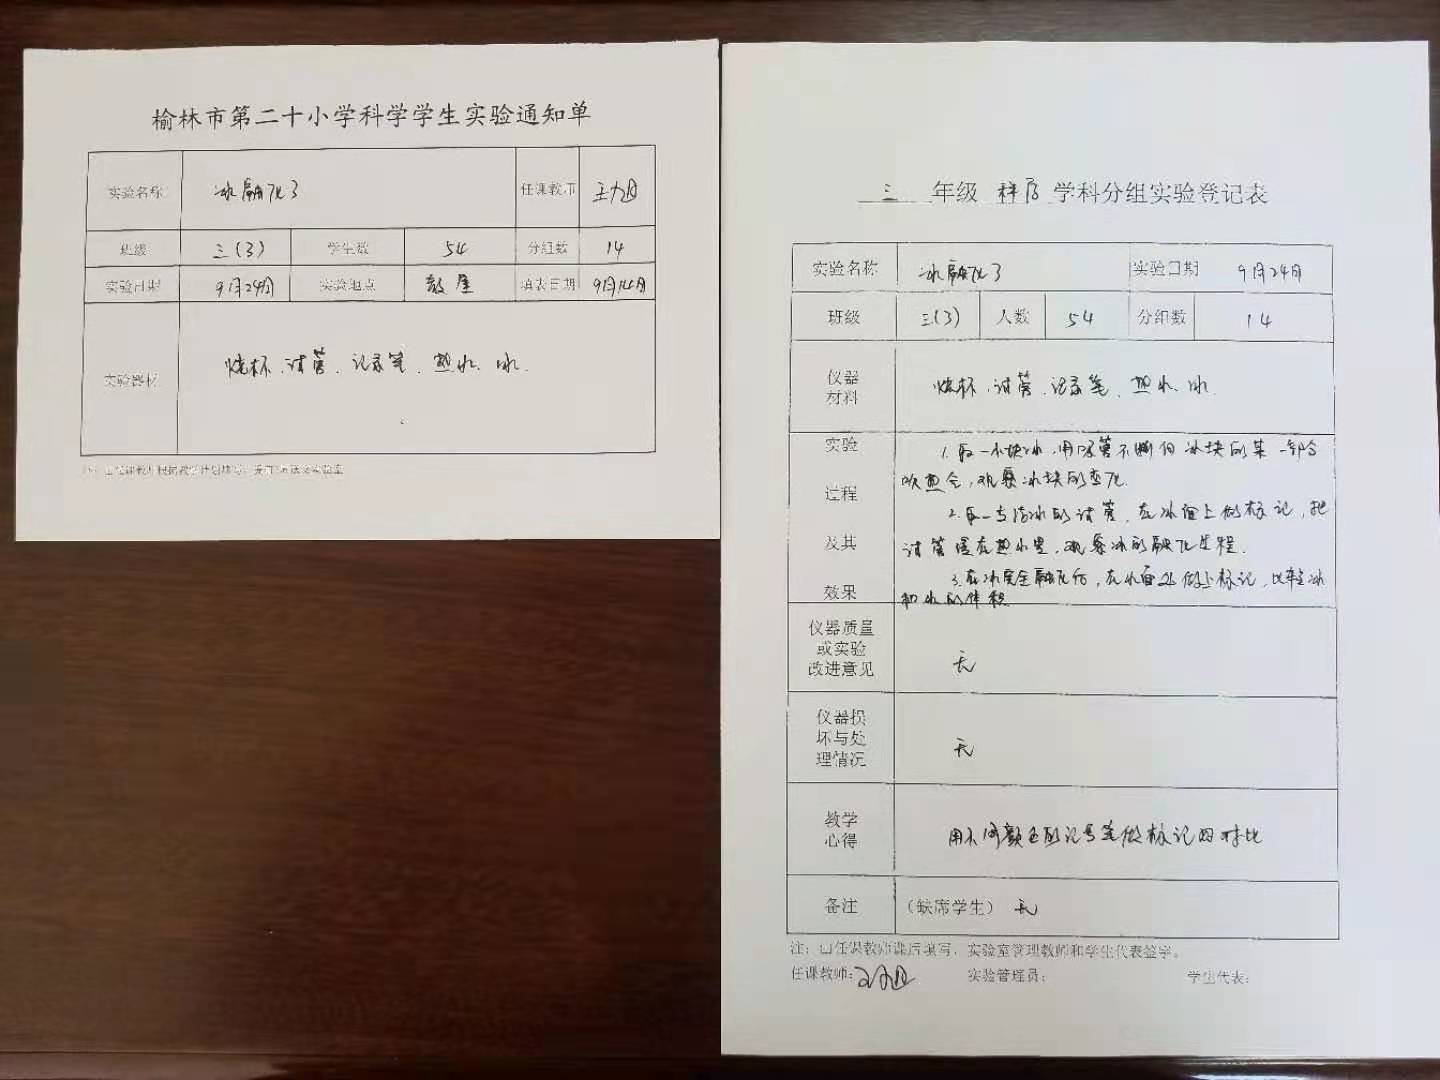 榆林市第二十小学科学学生实验通知单
实验名称 冰融化了 任课教师
班级 三(3) 学生数 54 分组数 14
实验日期 9月24日 实验地点 教室 填表日期 9月14日
实验器材 烧杯、试管、记录笔、热水、冰.
三 年级 科学 学科分组实验登记表
实验名称 冰融化了 实验日期 9月24日
班级 三(3) 人数 54 分组数 14
仪器
材料
烧杯、试管、记录笔、热水、冰.
实验
过程
及其
效果
1.取一小块冰,用吸管不断向冰块的某一部分
吹热气,观察冰块的变化.
2.取一支结冰的试管,在冰面上做标记,把
试管浸在热水里,观察冰的融化过程.
3.在冰完全融化后,在水面处做上标记,比较冰
和水的体积
仪器质量
或实验
改进意见
无
仪器损
坏与处
理情况
无
教学
心得
用不同颜色的记号笔做标记 对比
备注 (缺席学生) 无
注:由任课教师课后填写,实验室管理教师和学生代表签字。
任课教师: 实验管理员: 学生代表: